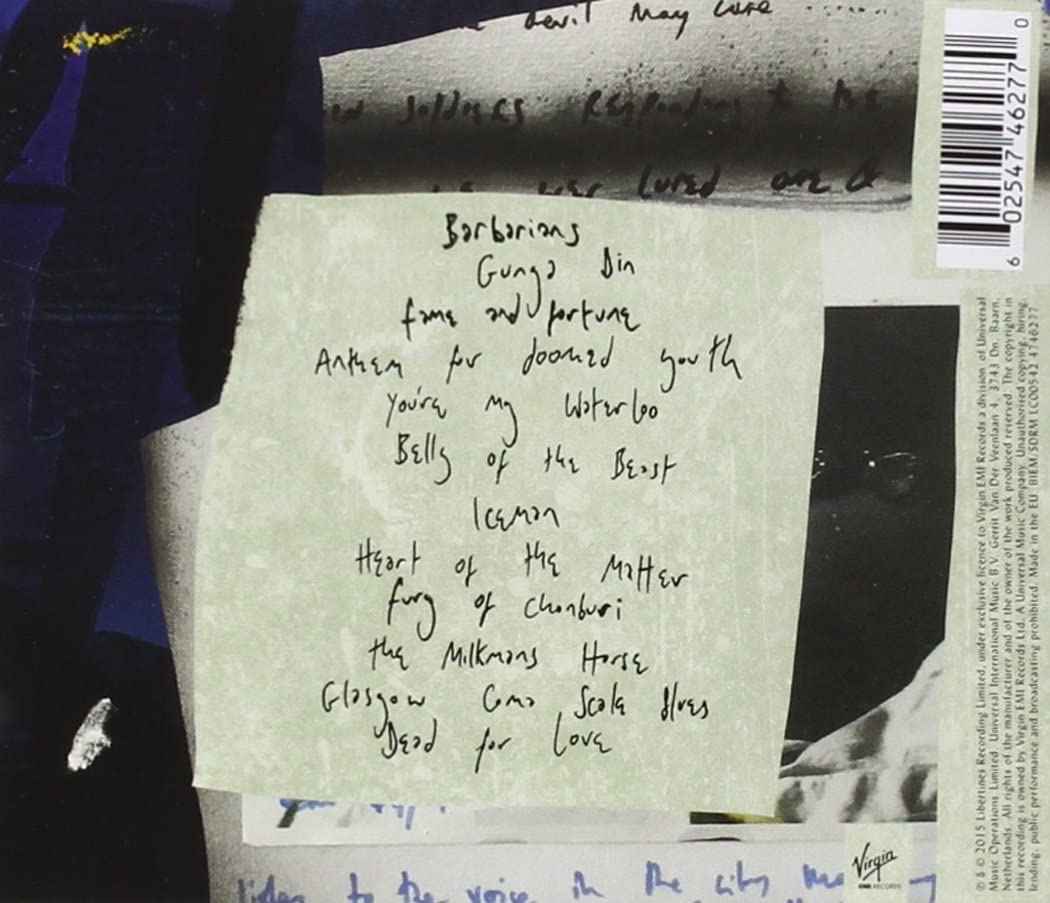 devil May Care
soldiers Responding to the
lured
Barbarians
Gunga Din
fame and fortune
Anthem for doomed youth
You're my Waterloo
Belly of the Beast
Iceman
Heart of the Matter
fury of Chonburi
the Milkmans Horse
Glasgow Coma Scale Blues
Dead for Love
listen to the voice in the city
Virgin
EMI RECORDS
6 02547 46277 0
℗ & © 2015 Libertines Recording Limited, under exclusive licence to Virgin EMI Records a division of Universal
Music Operations Limited. Universal International Music B.V. Gerrit Van Der Veenlaan 4, 3743 Dn, Baarn,
Netherlands. All rights of the manufacturer and of the owner of the work produced reserved. The copyright in
this recording is owned by Virgin EMI Records Ltd. A Universal Music Company. Unauthorised copying, hiring,
lending, public performance and broadcasting prohibited. Made in the EU. BIEM/SDRM LC00542 4746277